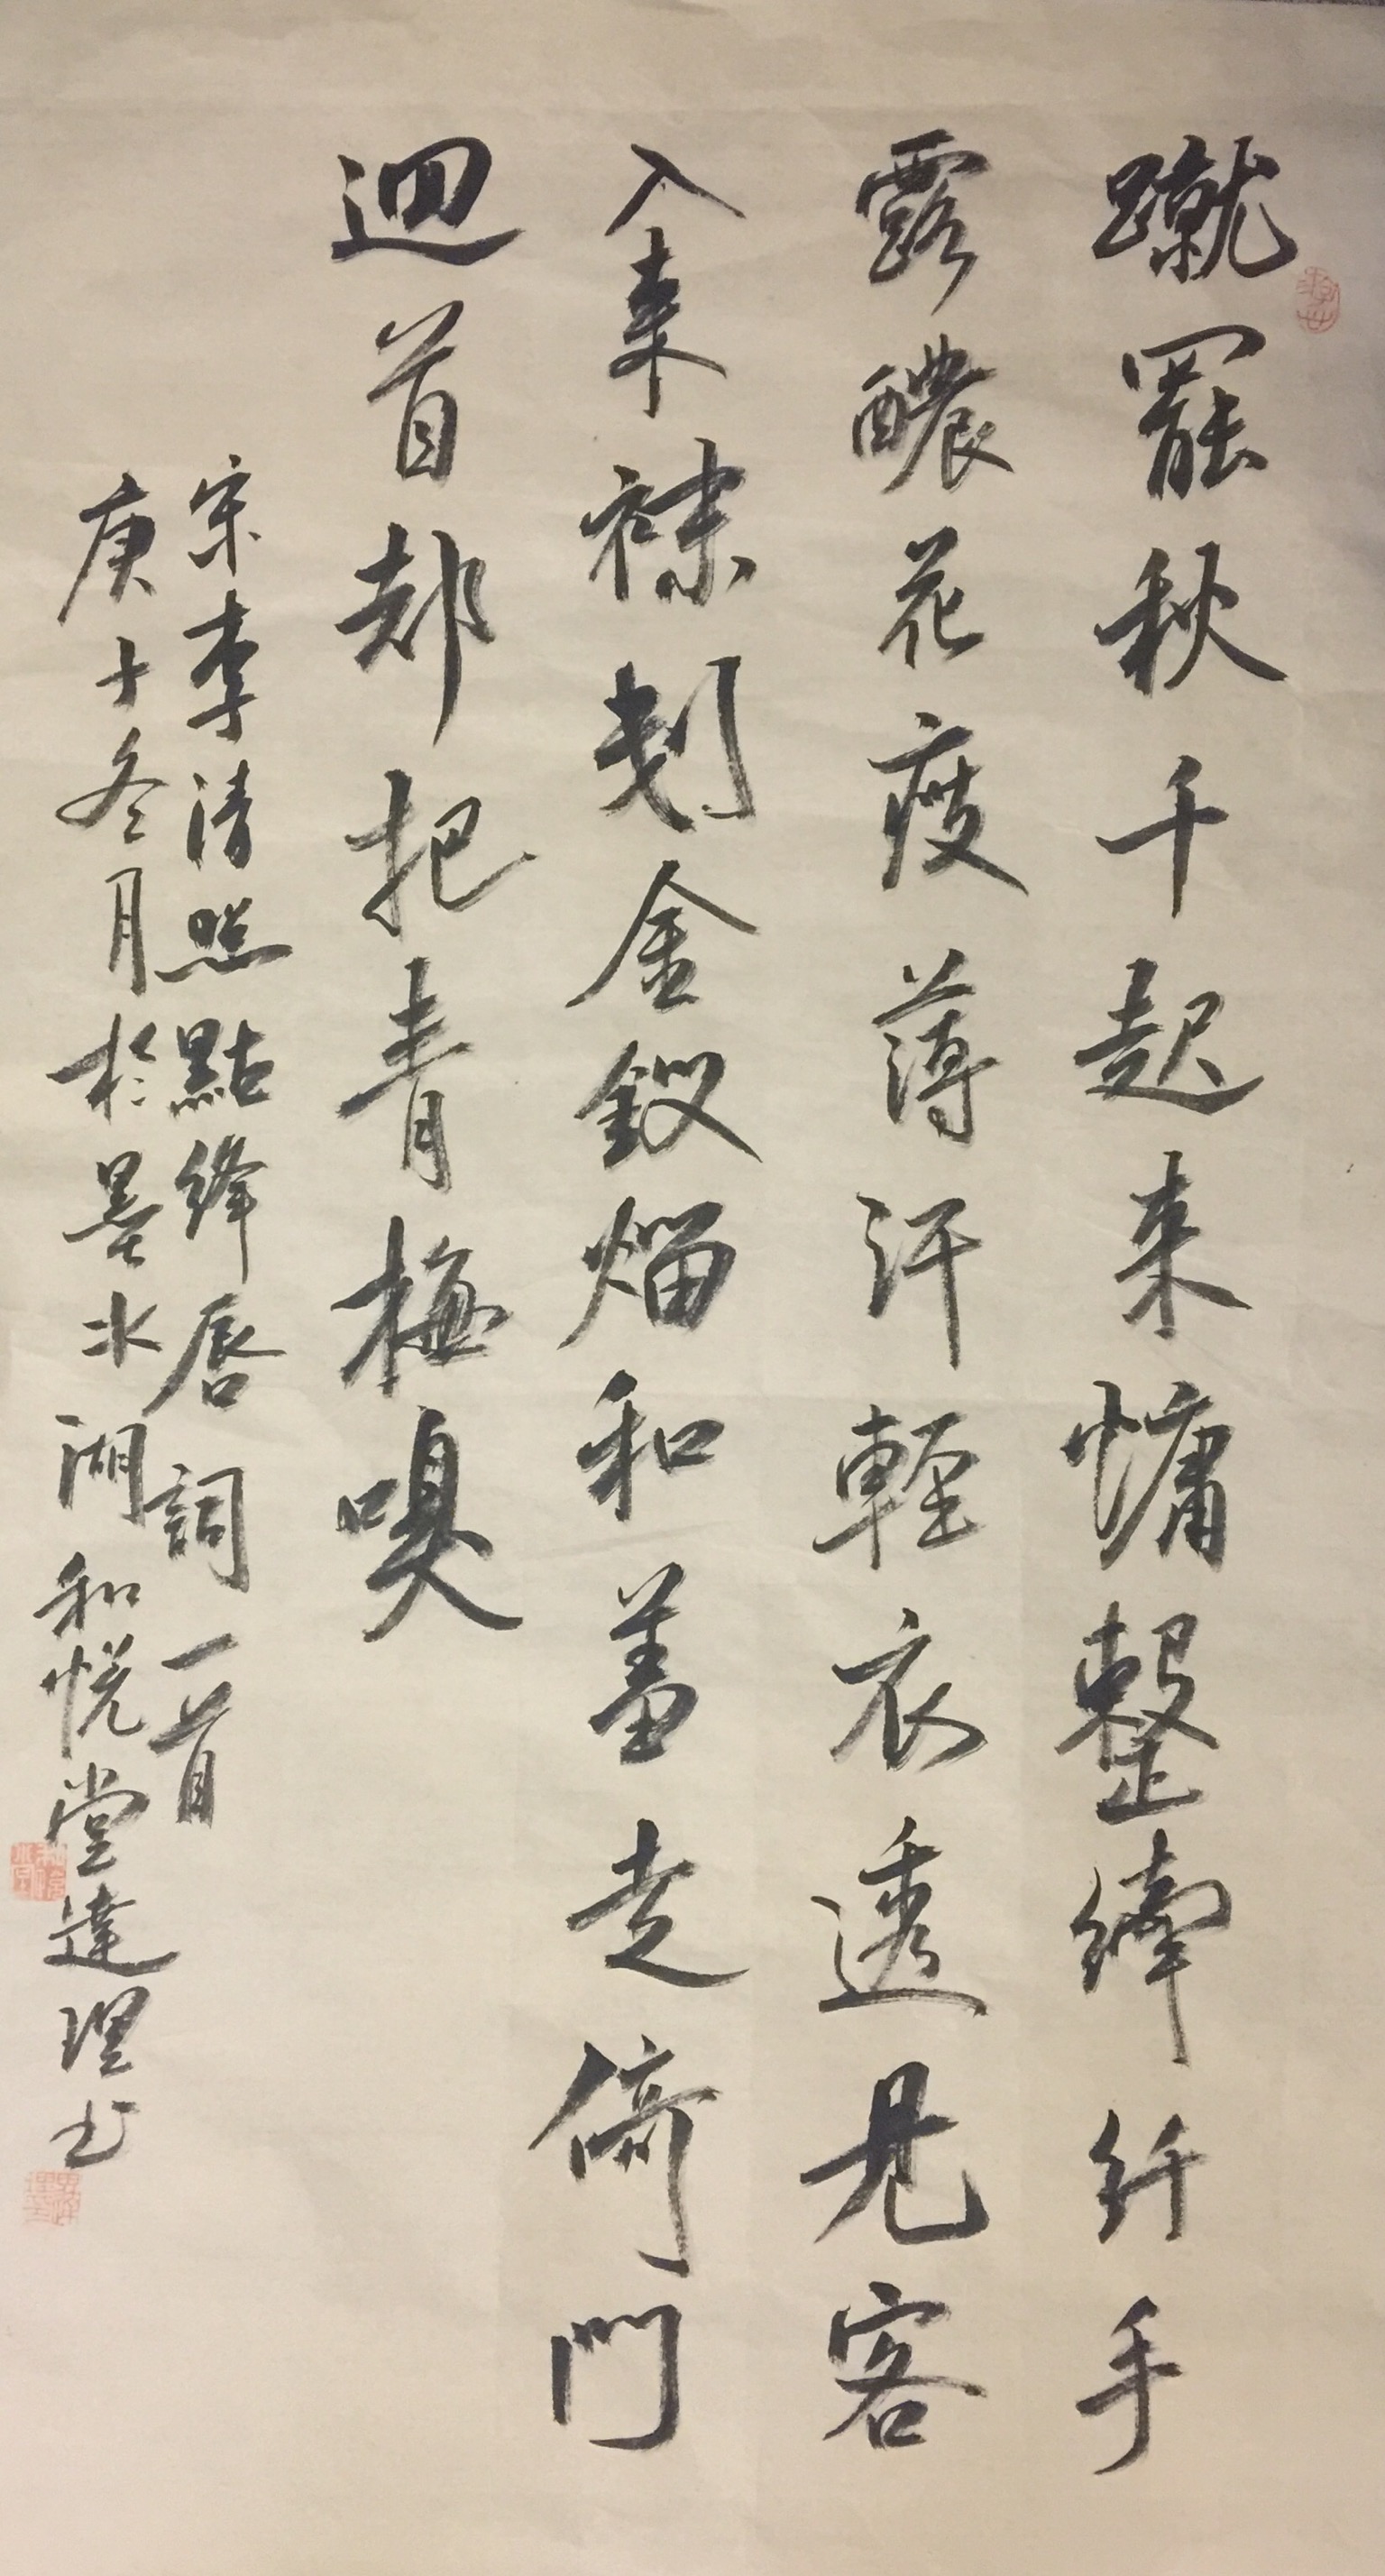 蹴罷秋千起来慵整纖纤手
露醲花瘦薄汗輕衣透見客
入来袜刬金釵熘和羞走倚門
迴首却把青梅嗅
宋李清照點絳唇詞一首
庚子冬月於墨水湖和悦堂達理书